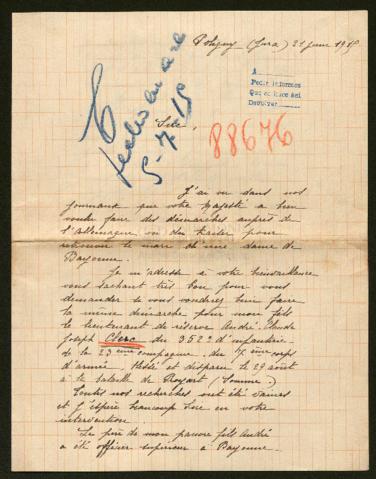 Poligny (Jura) 21 juin 1915
A
Pedir informes
Que se hace así
Devolver
Reclamare
5-7-15
88676
Sire,
J'ai vu dans nos
journaux que votre Majesté a bien
voulu faire des démarches auprès de
l'Allemagne ou du Kaiser pour
retrouver le mari d'une dame de
Bayonne.
Je m'adresse à votre bienveillance
vous sachant très bon pour vous
demander si vous voudriez bien faire
la même démarche pour mon fils
le lieutenant de réserve André Claude
Joseph Clerc du 352e d'infanterie
de la 23ème compagnie du 7ème corps
d'armée. Blessé et disparu le 29 août
à la bataille de Proyart (Somme).
Toutes nos recherches ont été vaines
et j'espère beaucoup Sire en votre
intervention.
Le père de mon pauvre fils André
a été officier supérieur à Bayonne.